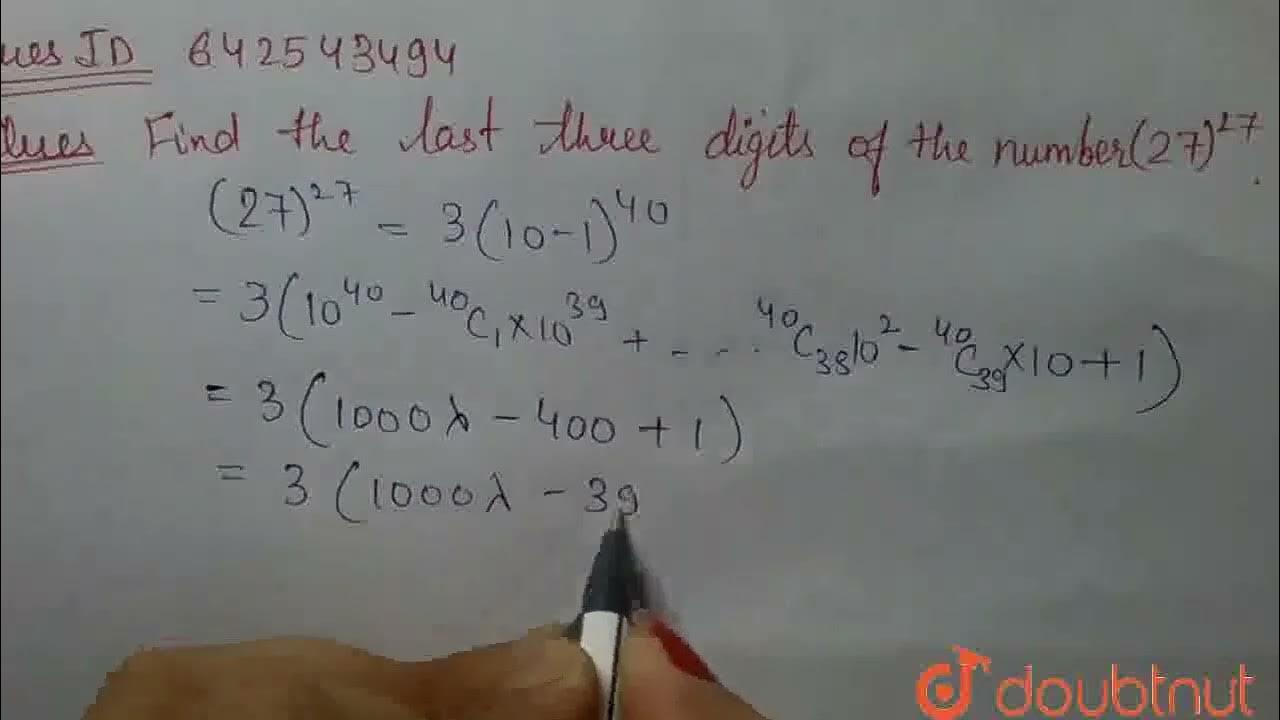 ues ID 642543494
lues Find the last three digits of the number (27)²⁷.
(27)²⁷ = 3(10-1)⁴⁰
= 3(10⁴⁰ - ⁴⁰C₁×10³⁹ + - - - . ⁴⁰C₃₈10² - ⁴⁰C₃₉×10+1)
= 3(1000λ - 400 + 1)
= 3(1000λ - 39
doubtnut